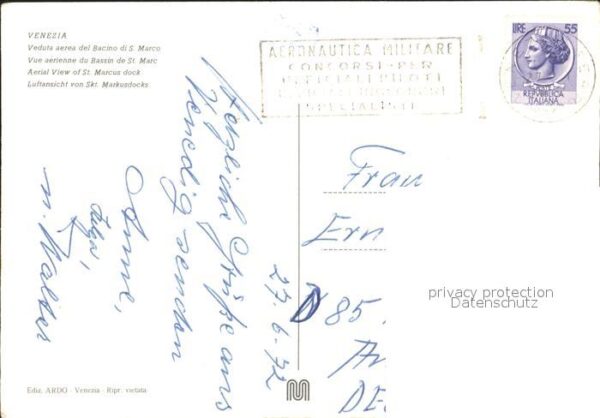 VENEZIA
Veduta aerea del Bacino di S. Marco
Vue aerienne du Bassin de St. Marc
Aerial View of St. Marcus dock
Luftansicht von Skt. Markusdocks
AERONAUTICA MILITARE
CONCORSI PER
UFFICIALI PILOTI
SPECIALISTI
LIRE 55
REPUBBLICA
ITALIANA
Herzliche Grüße aus
Venedig senden
Anne,
u. Walter
27.6.72
Frau
Ern
D 85.
DE
privacy protection
Datenschutz
Ediz. ARDO - Venezia - Ripr. vietata